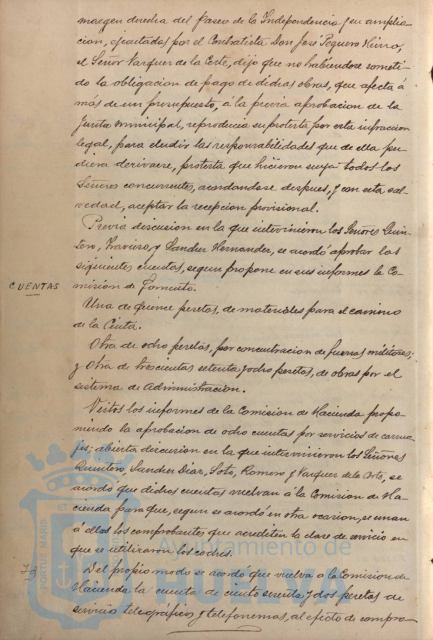 margen derecha del Paseo de la Independencia y su amplia-
cion, ejecutadas por el Contratista Don José Peguero
el Señor Vazquez de la Corte, dijo que no habiendose someti-
do la obligacion de pago de dichas obras, que afecta á
más de un presupuesto, á la previa aprobacion de la
Junta municipal, reproducia su protesta por esta infraccion
legal, para eludir las responsabilidades que de ella pu-
diera derivarse, protesta que hicieron suya todos los
Señores concurrentes, acordandose despues, y con esta sal-
vedad, aceptar la recepcion provisional.
Previa discusion en la que intervinieron los Señores Quin-
tero, Traviero, y Sander Hernander, se acordó aprobar las
siguientes cuentas, segun propone en sus informes la Co-
CUENTAS
mision de Fomento.
Una de quince pesetas, de materiales para el camino
de la Cinta.
Otra de ocho pesetas, por concentracion de fuerzas militares;
y otra de trescientas setenta y ocho pesetas, de obras por el
sistema de Administracion.
Vistos los informes de la Comision de Hacienda propo-
niendo la aprobacion de ocho cuentas por servicios de carrua-
jes; abierta discusion en la que intervinieron los Señores
Quintero, Sander Diaz, Soto, Romero y Vazquez de la Corte, se
acordó que dichas cuentas vuelvan á la Comision de Ha-
cienda para que, segun se acordó en otra ocasion, se unan
á ellas los comprobantes que acrediten la clase de servicio en
que se utilizaron los coches.
Del propio modo se acordó que vuelva á la Comision de
Hacienda la cuenta de ciento sesenta y dos pesetas de
servicio telegráfico y telefonemas, al efecto de compro-
Ayuntamiento de
HUELVA
PORTUS MARIS